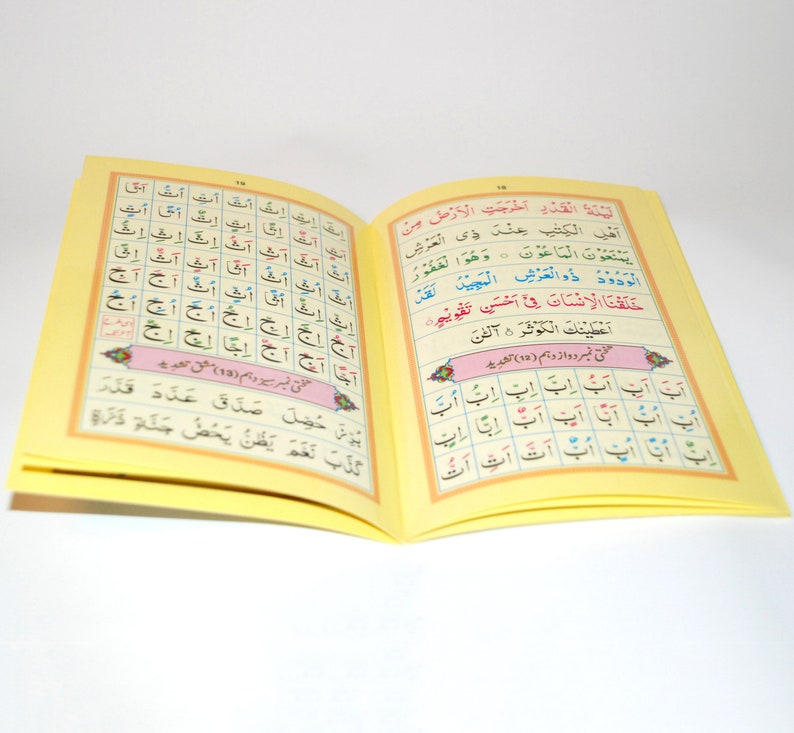 18
لَيْلَةُ الْقَدْرِ اَخْرَجَتِ الْاَرْضُ مِنْ
اَهْلِ الْكِتٰبِ عِنْدَ ذِى الْعَرْشِ
يَمْنَعُوْنَ الْمَاعُوْنَ ○ وَهُوَ الْغَفُوْرُ
الْوَدُوْدُ ذُو الْعَرْشِ الْمَجِيْدُ لَقَدْ
خَلَقْنَا الْاِنْسَانَ فِىْ اَحْسَنِ تَقْوِيْمٍ ○
اَعْطَيْنٰكَ الْكَوْثَرَ ○ آلْئٰنَ
تختی نمبر دوازدہم (12) تشدید
اَبَّ اَبِّ اَبُّ اِبَّ اِبِّ اِبُّ اُبَّ
اُبِّ اُبُّ اَبًّا اَبٍّ اَبٌّ اِبًّا اِبٍّ
اِبٌّ اُبًّا اُبٍّ اُبٌّ اَتَّ اَتِّ اَتُّ
19
اِتَّ اِتِّ اِتُّ اُتَّ اُتِّ اُتُّ اَتًّا
اَتٍّ اَتٌّ اِتًّا اِتٍّ اِتٌّ اُتًّا اُتٍّ
اُتٌّ اَثَّ اَثِّ اَثُّ اِثَّ اِثِّ اِثُّ
اُثَّ اُثِّ اُثُّ اَثًّا اَثٍّ اَثٌّ اِثًّا
اِثٍّ اِثٌّ اُثًّا اُثٍّ اُثٌّ اَجَّ اَجِّ
اَجُّ اِجَّ اِجِّ اِجُّ اُجَّ اُجِّ اُجُّ
اَجًّا اَجٍّ اَجٌّ اِجًّا اِجٍّ اِجٌّ
تختی نمبر سیزدہم (13) مشق تشدید
حُصِّلَ صَدَّقَ عَدَّدَ قَدَّرَ
كَذَّبَ نَعَّمَ يَظُنُّ يَحُضُّ جَنَّةٍ ذَرَّةٍ